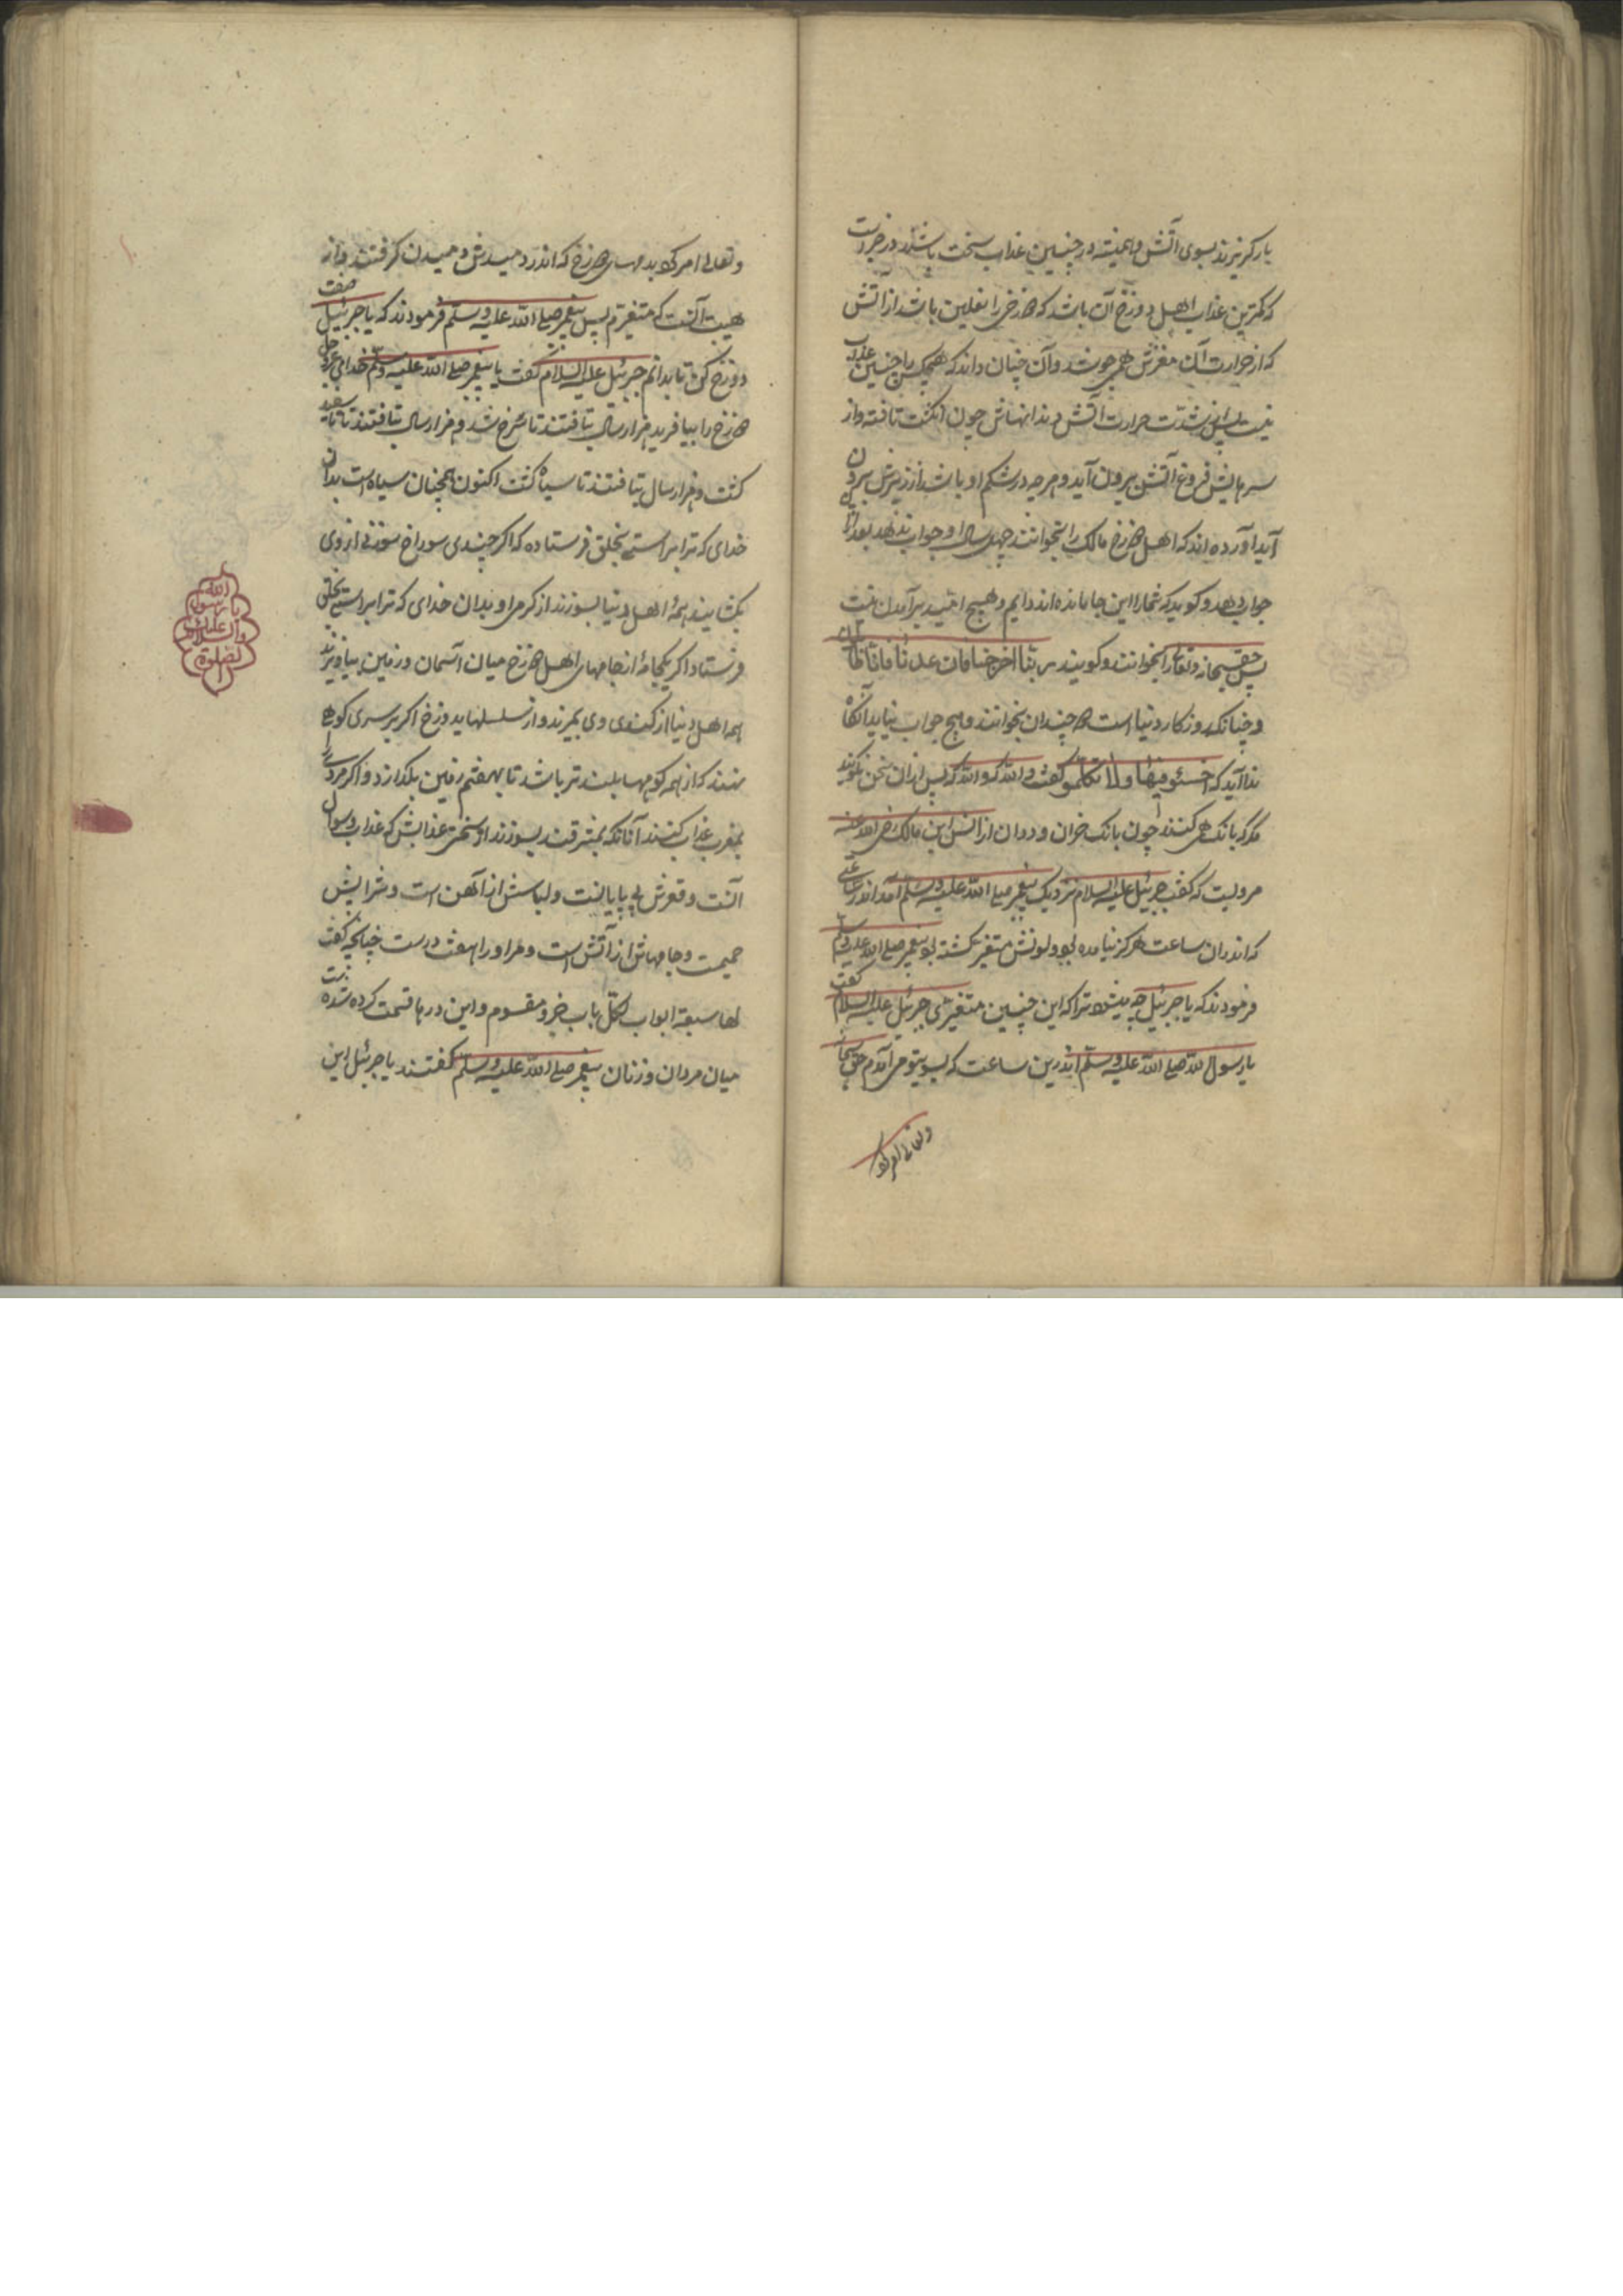 باز گریزند بسوی آتش و همیشه در چنین عذاب سخت باشند در خبرست
که کمترین عذاب اهل دوزخ آن باشد که دوزخی را نعلین باشد از آتش
که از حرارت آن مغزش همی جوشد و آن چنان داند که هیچکس را چنین عذاب
نیست پس از شدت حرارت آتش دندانهاش چون انکشت تافته و از
سر هایش فروغ آتش بیرون آید و هرچه در شکم او باشد از زیرش بیرون
آید آورده اند که اهل دوزخ مالک را بخوانند چهل سال او جواب ندهد بعد از
جواب دهد و کوید که شمارا این جا مانده اند دایم و هیچ امید برآمدن نیست
پس حق سبحانه و تعالی را بخوانند و کویند ربنا اخرجنا فان عدنا فانا ظالمون
و چنانکه روزکار دنیا است دو چندان بخوانند و هیچ جواب نیاید آنکاه
ندا آید که اخسئو فیها ولا تکلمو گفت والله که پس ازان سخن نکویند
مکر که بانک همی کنند چون بانک خران و ددان از انس ابن مالک رضی الله عنه
مرویست که گفت جبرئیل علیه السلام نزدیک پیغمبر صلی الله علیه وسلم آمد اندر ساعتی
که اندران ساعت هرکز نیامده بود و لونش متغیر کشته بود پیغمبر صلی الله علیه وسلم
فرمودند که یا جبرئیل چه پیش آمد ترا که این چنین متغیر شدی جبرئیل علیه السلام گفت
یا رسول الله صلی الله علیه وسلم اندرین ساعت که بسوی تو می آمدم حق سبحانه
وتعالی امر کرد
وتعالی امر کرد بدمهای دوزخ که اندر دمیدنش دمیدن گرفتند و از
هیبت آنست که متغیرم پس پیغمبر صلی الله علیه وسلم فرمودند که یا جبرئیل صفت
دوزخ کن تا بدانم جبرئیل علیه السلام گفت یا پیغمبر صلی الله علیه وسلم خدای عزوجل
دوزخ را بیافرید هزار سال بتافتند تا سرخ شد و هزار سال بتافتند تا سفید
کشت و هزار سال بتافتند تا سیاه کشت اکنون همچنان سیاه است بدان
خدای که ترا براستی بخلق فرستاده که اگر چندی سوراخ سوزنی از وی
بکشایند همۀ اهل دنیا بسوزند از کرمی او بدان خدای که ترا براستی بخلق
فرستاد اگر یکجامۀ از جامهای اهل دوزخ میان آسمان و زمین بیاویزند
همه اهل دنیا از کندی وی بمیرند و از سلسلها یدوزخ اگر بر سری کوهی
نهند که از همه کوهها بلندتر باشد تا بهفتم زمین بکدازد و اگر مردی را
بمغرب عذاب کنند آنانکه بمشرقند بسوزند از سختی عذابش که عذاب رسول
آنست و قعرش بی پایانست و لباسش از آهن است و شرابش
حمیمت و جامهاش از آتش است و مر او را هفت درست چنانچه گفت
لها سبعة ابواب لکل باب جزو مقسوم و این درها قسمت کرده شده
میان مردان و زنان پیغمبر صلی الله علیه وسلم گفتند یا جبرئیل این
الصلوة
والسلام علیک
یا رسول
الله